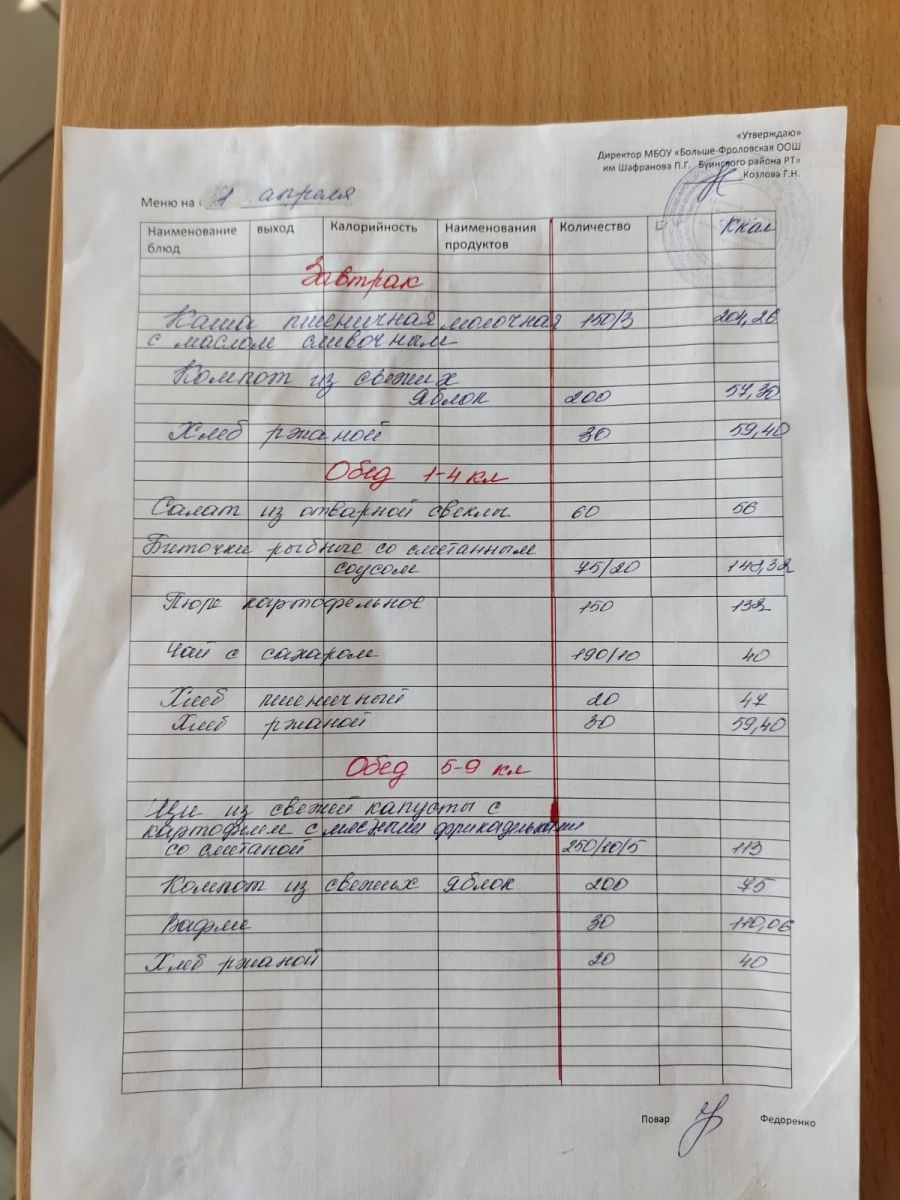 «Утверждаю»
Директор МБОУ «Больше-Фроловская ООШ
им Шафранова П.Г. Буинского района РТ»
Козлова Г.Н.
Меню на « 1 апреля
Наименование блюд выход Калорийность Наименования продуктов Количество Ц Ккал
Завтрак
Каша пшеничная молочная 150/3 204,26
с маслом сливочным
Компот из свежих
яблок 200 57,30
Хлеб ржаной 30 59,40
Обед 1-4 кл
Салат из отварной свеклы 60 56
Биточки рыбные со сметанным
соусом 75/20 148,32
Пюре картофельное 150 132
Чай с сахаром 190/10 40
Хлеб пшеничный 20 47
Хлеб ржаной 30 59,40
Обед 5-9 кл
Щи из свежей капусты с
картофелем с мясными фрикадельками
со сметаной 250/10/5 113
Компот из свежих яблок 200 75
Вафли 30 110,06
Хлеб ржаной 20 40
Повар Федоренко